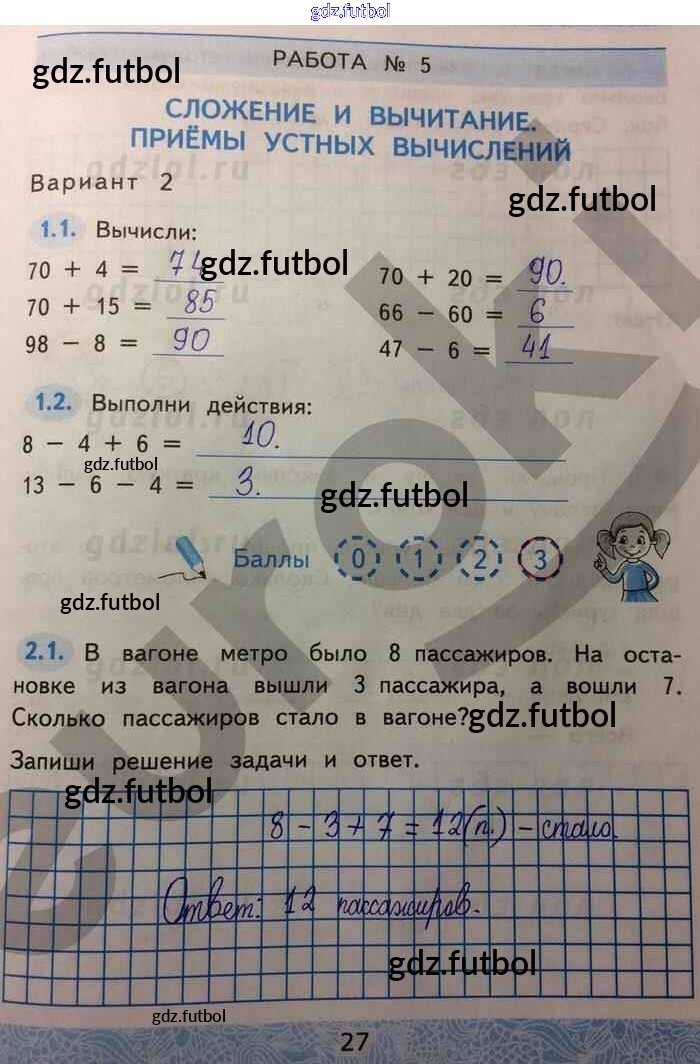 gdz.futbol
РАБОТА № 5
gdz.futbol
СЛОЖЕНИЕ И ВЫЧИТАНИЕ.
ПРИЁМЫ УСТНЫХ ВЫЧИСЛЕНИЙ
Вариант 2
gdz.futbol
1.1. Вычисли:
70 + 4 = 74
gdz.futbol
70 + 20 = 90.
70 + 15 = 85
66 − 60 = 6
98 − 8 = 90
47 − 6 = 41
1.2. Выполни действия:
8 − 4 + 6 = 10.
gdz.futbol
13 − 6 − 4 = 3.
gdz.futbol
Баллы 0 1 2 3
gdz.futbol
2.1. В вагоне метро было 8 пассажиров. На оста-
новке из вагона вышли 3 пассажира, а вошли 7.
Сколько пассажиров стало в вагоне?
gdz.futbol
Запиши решение задачи и ответ.
gdz.futbol
8 − 3 + 7 = 12 (п.) − стало.
Ответ: 12 пассажиров.
gdz.futbol
gdz.futbol
27